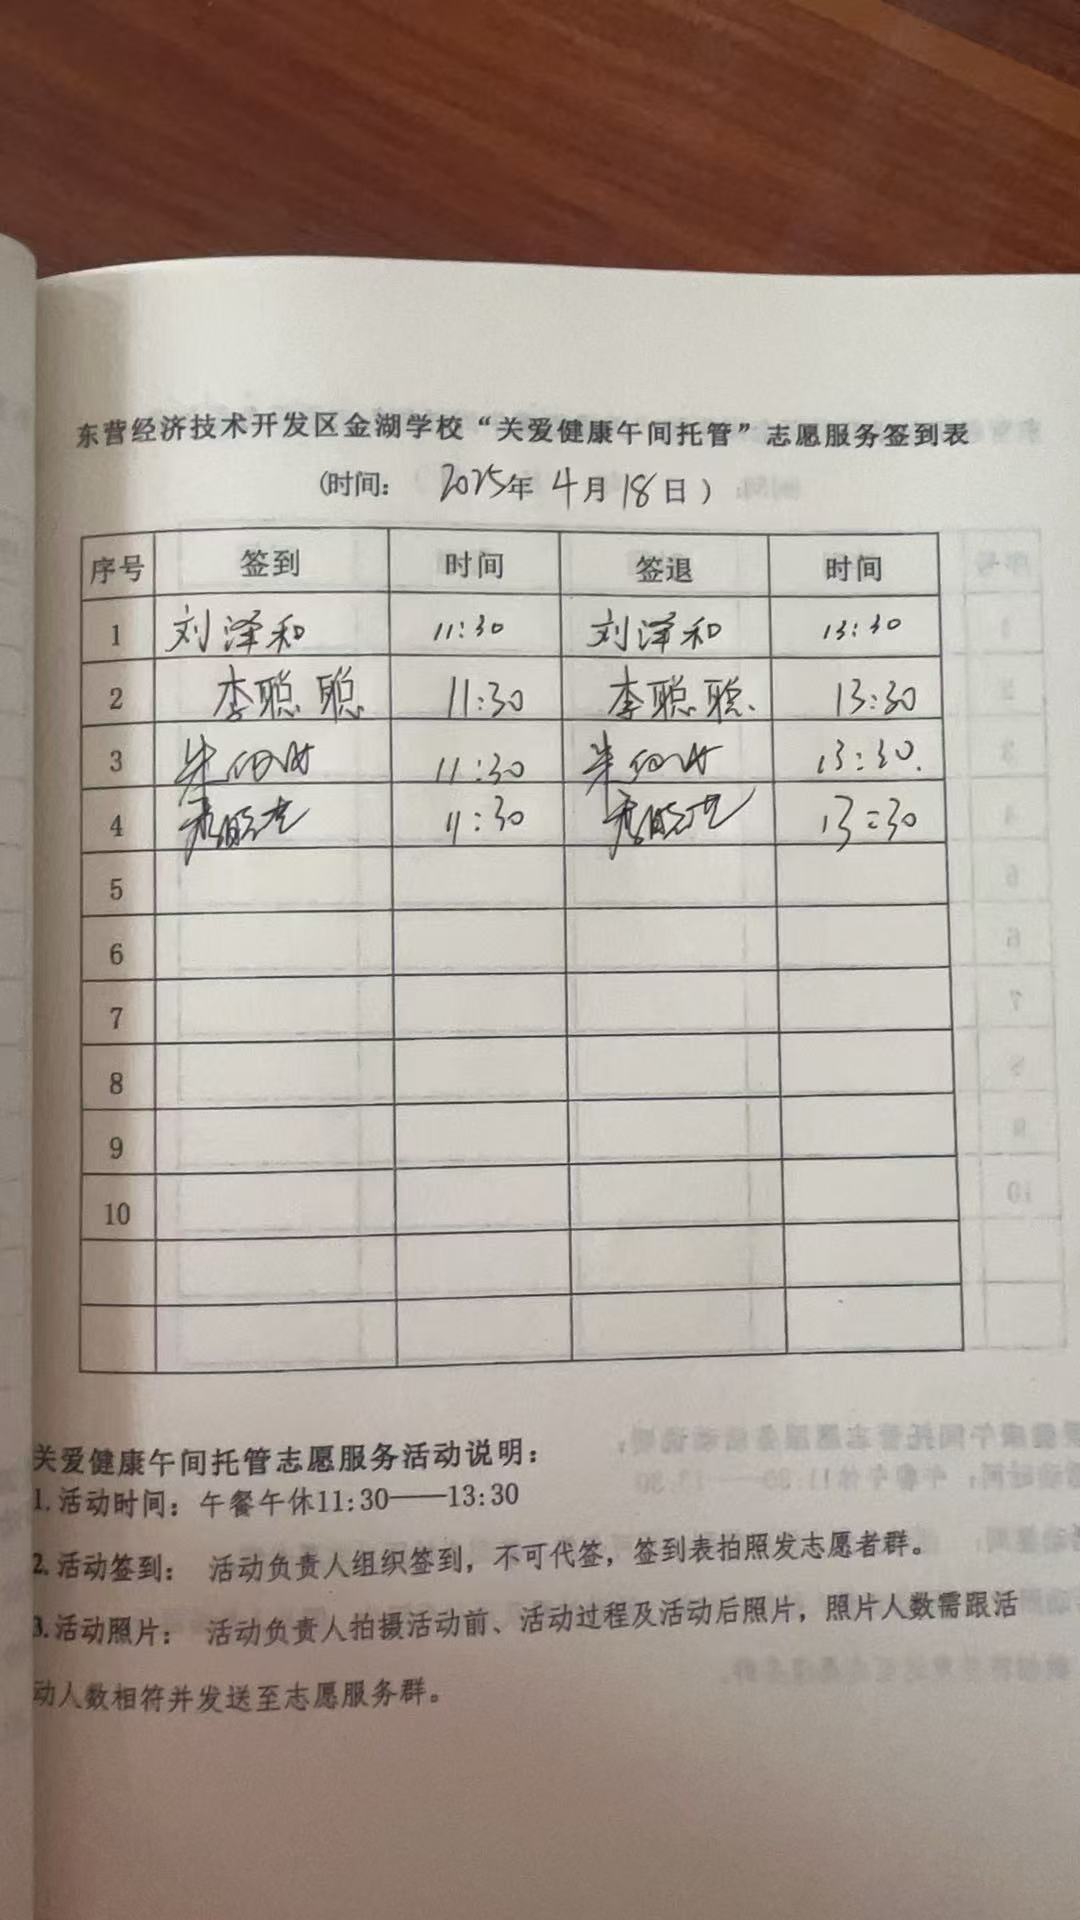 东营经济技术开发区金湖学校“关爱健康午间托管”志愿服务签到表
(时间： 2025年 4月18日）
序号 签到 时间 签退 时间
1 刘泽和 11:30 刘泽和 13:30
2 李聪聪 11:30 李聪聪 13:30
3 朱 11:30 朱 13:30
4 11:30 13:30
5
6
7
8
9
10
关爱健康午间托管志愿服务活动说明：
1.活动时间：午餐午休11:30——13:30
2.活动签到： 活动负责人组织签到，不可代签，签到表拍照发志愿者群。
3.活动照片： 活动负责人拍摄活动前、活动过程及活动后照片，照片人数需跟活
动人数相符并发送至志愿服务群。